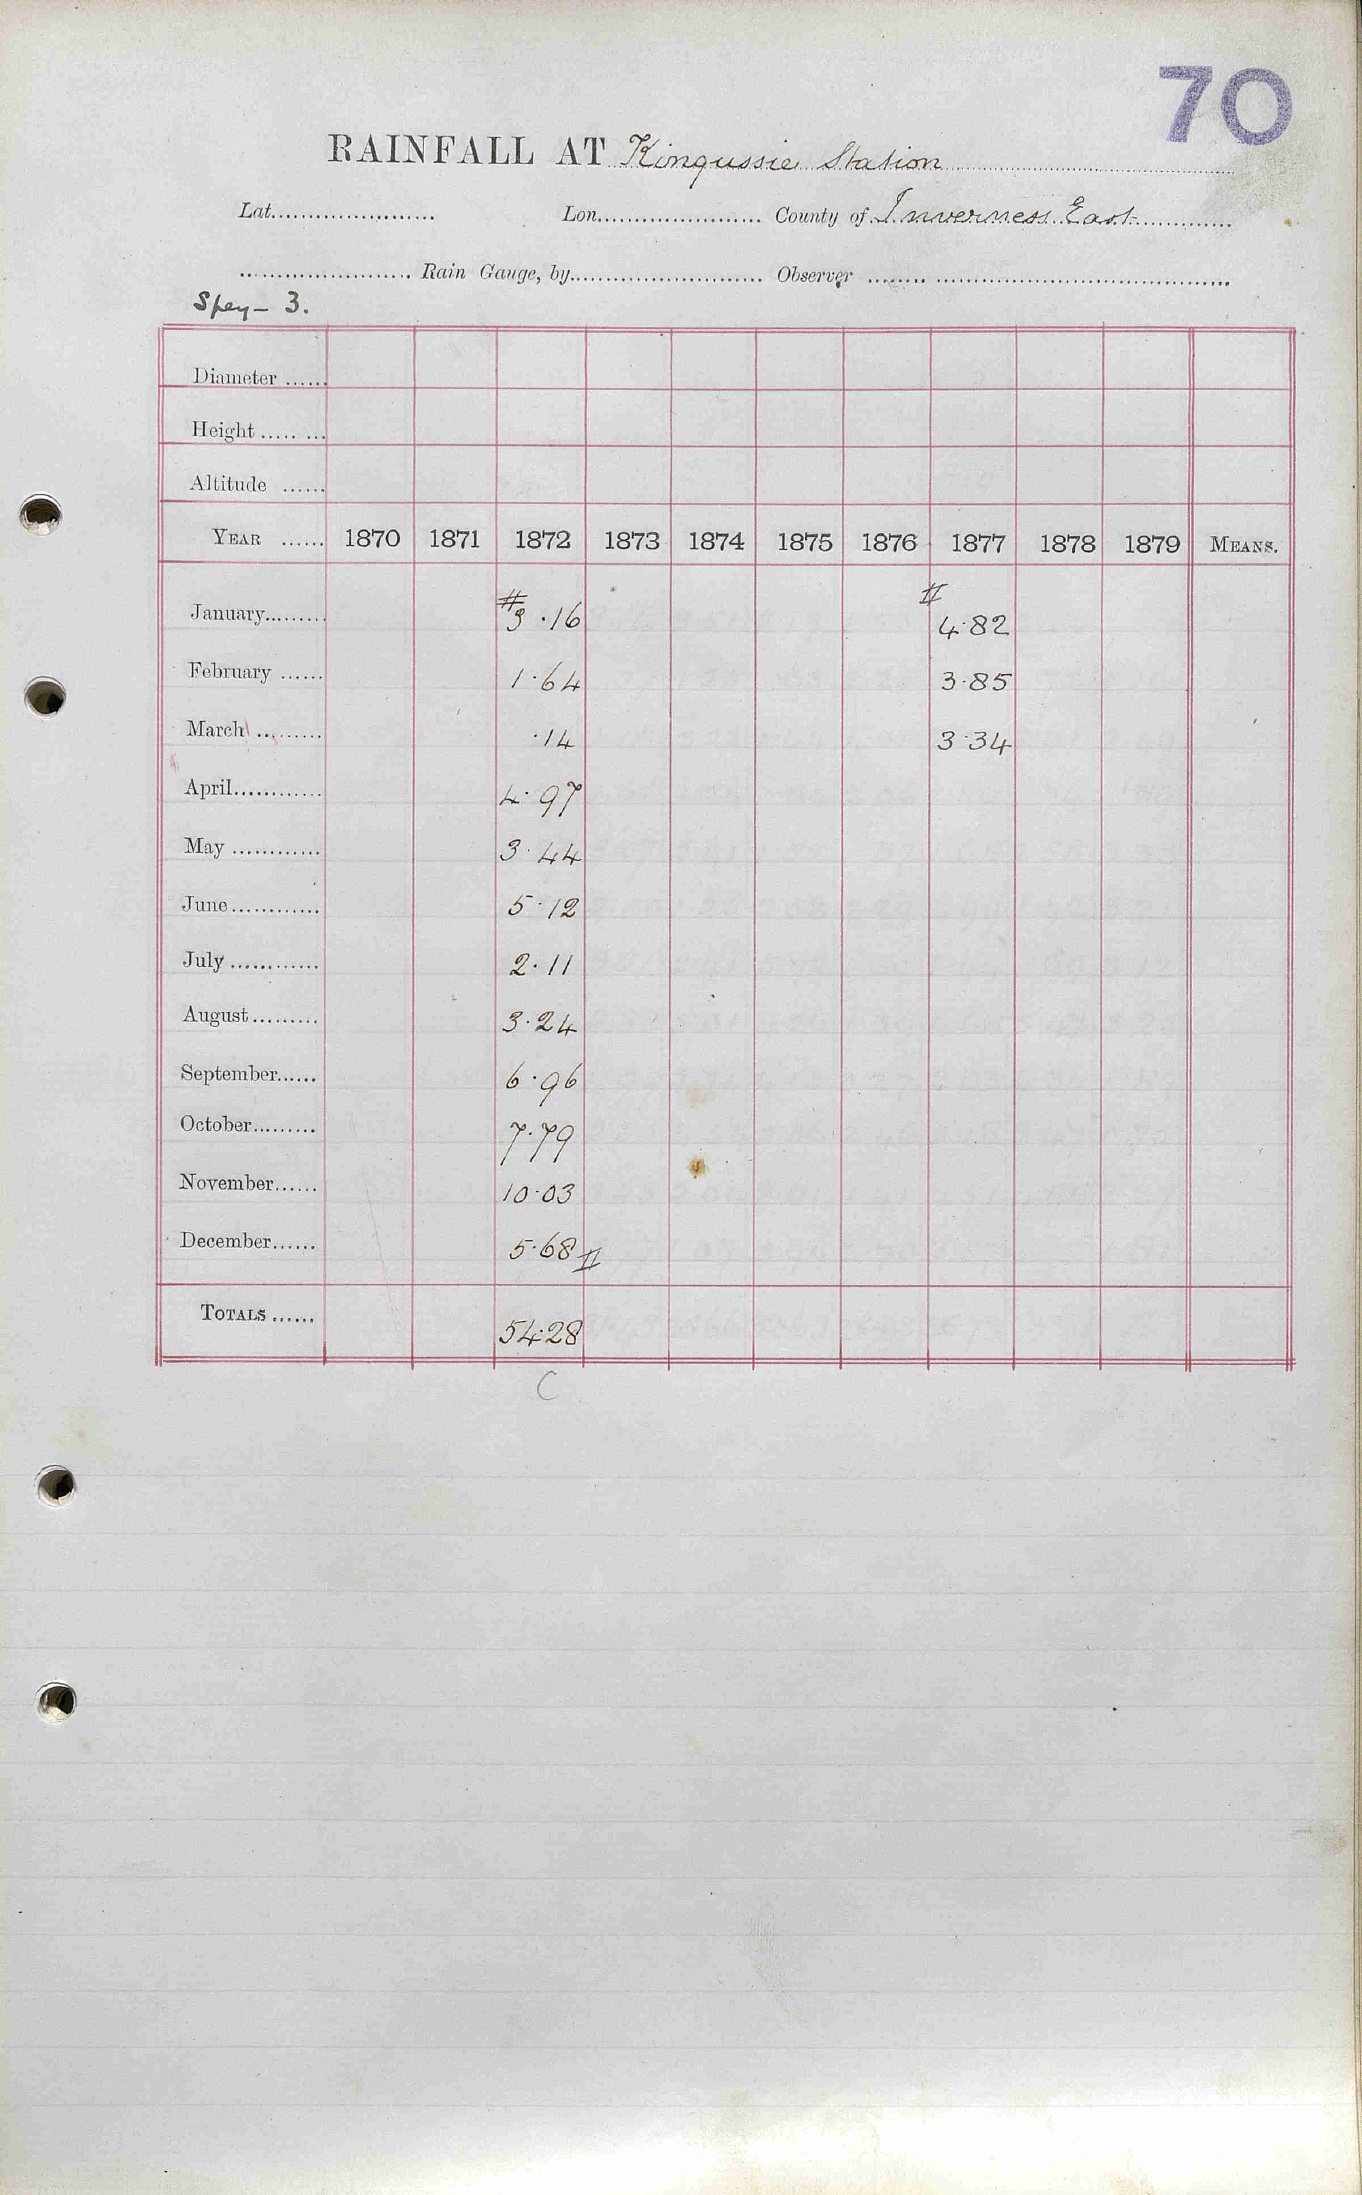 70
RAINFALL AT Kingussie Station
Lat...................... Lon...................... County of Inverness East
....................... Rain Gauge, by.......................... Observer ........ ........................................
Spey - 3.
Diameter ......
Height ..... ...
Altitude ......
YEAR ...... 1870 1871 1872 1873 1874 1875 1876 1877 1878 1879 MEANS.
January......... 3.16 4.82
February ...... 1.64 3.85
March ......... .14 3.34
April............ 4.97
May ............ 3.44
June............ 5.12
July ............ 2.11
August......... 3.24
September...... 6.96
October......... 7.79
November...... 10.03
December...... 5.68
TOTALS ...... 54.28
C